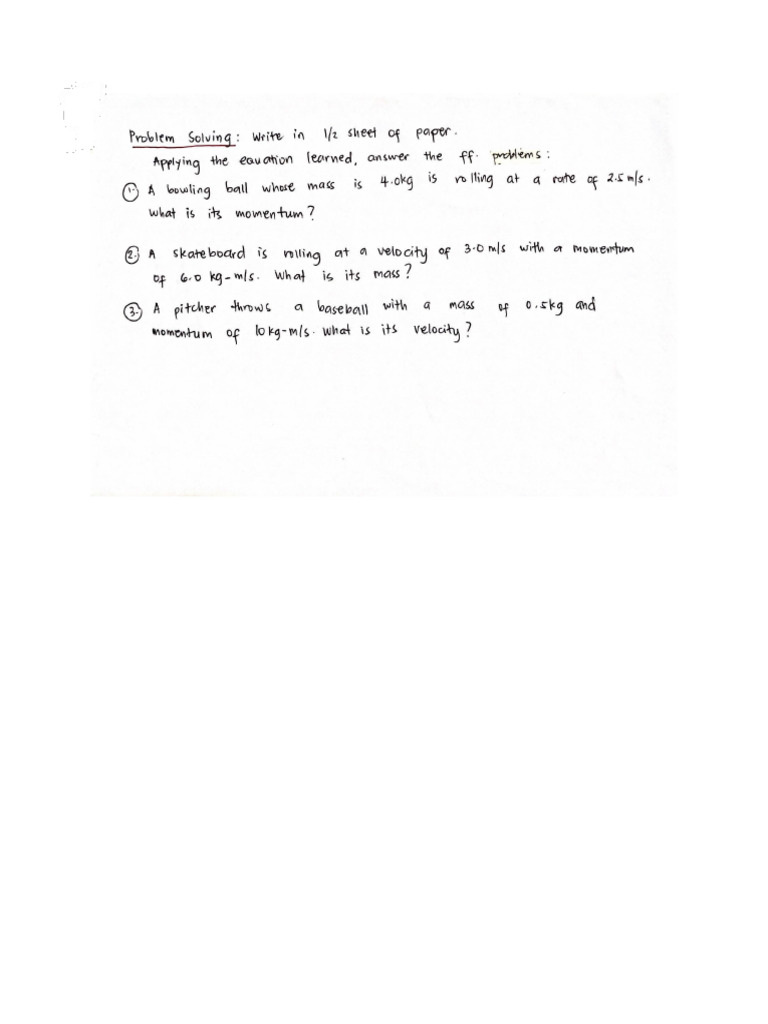 Problem Solving: Write in 1/2 sheet of paper.
Applying the eauation learned, answer the ff. problems:
1. A bowling ball whose mass is 4.0kg is rolling at a rate of 2.5 m/s.
What is its momentum?
2. A skateboard is rolling at a velocity of 3.0 m/s with a momentum
of 6.0 kg-m/s. What is its mass?
3. A pitcher throws a baseball with a mass of 0.5kg and
momentum of 10kg-m/s. What is its velocity?